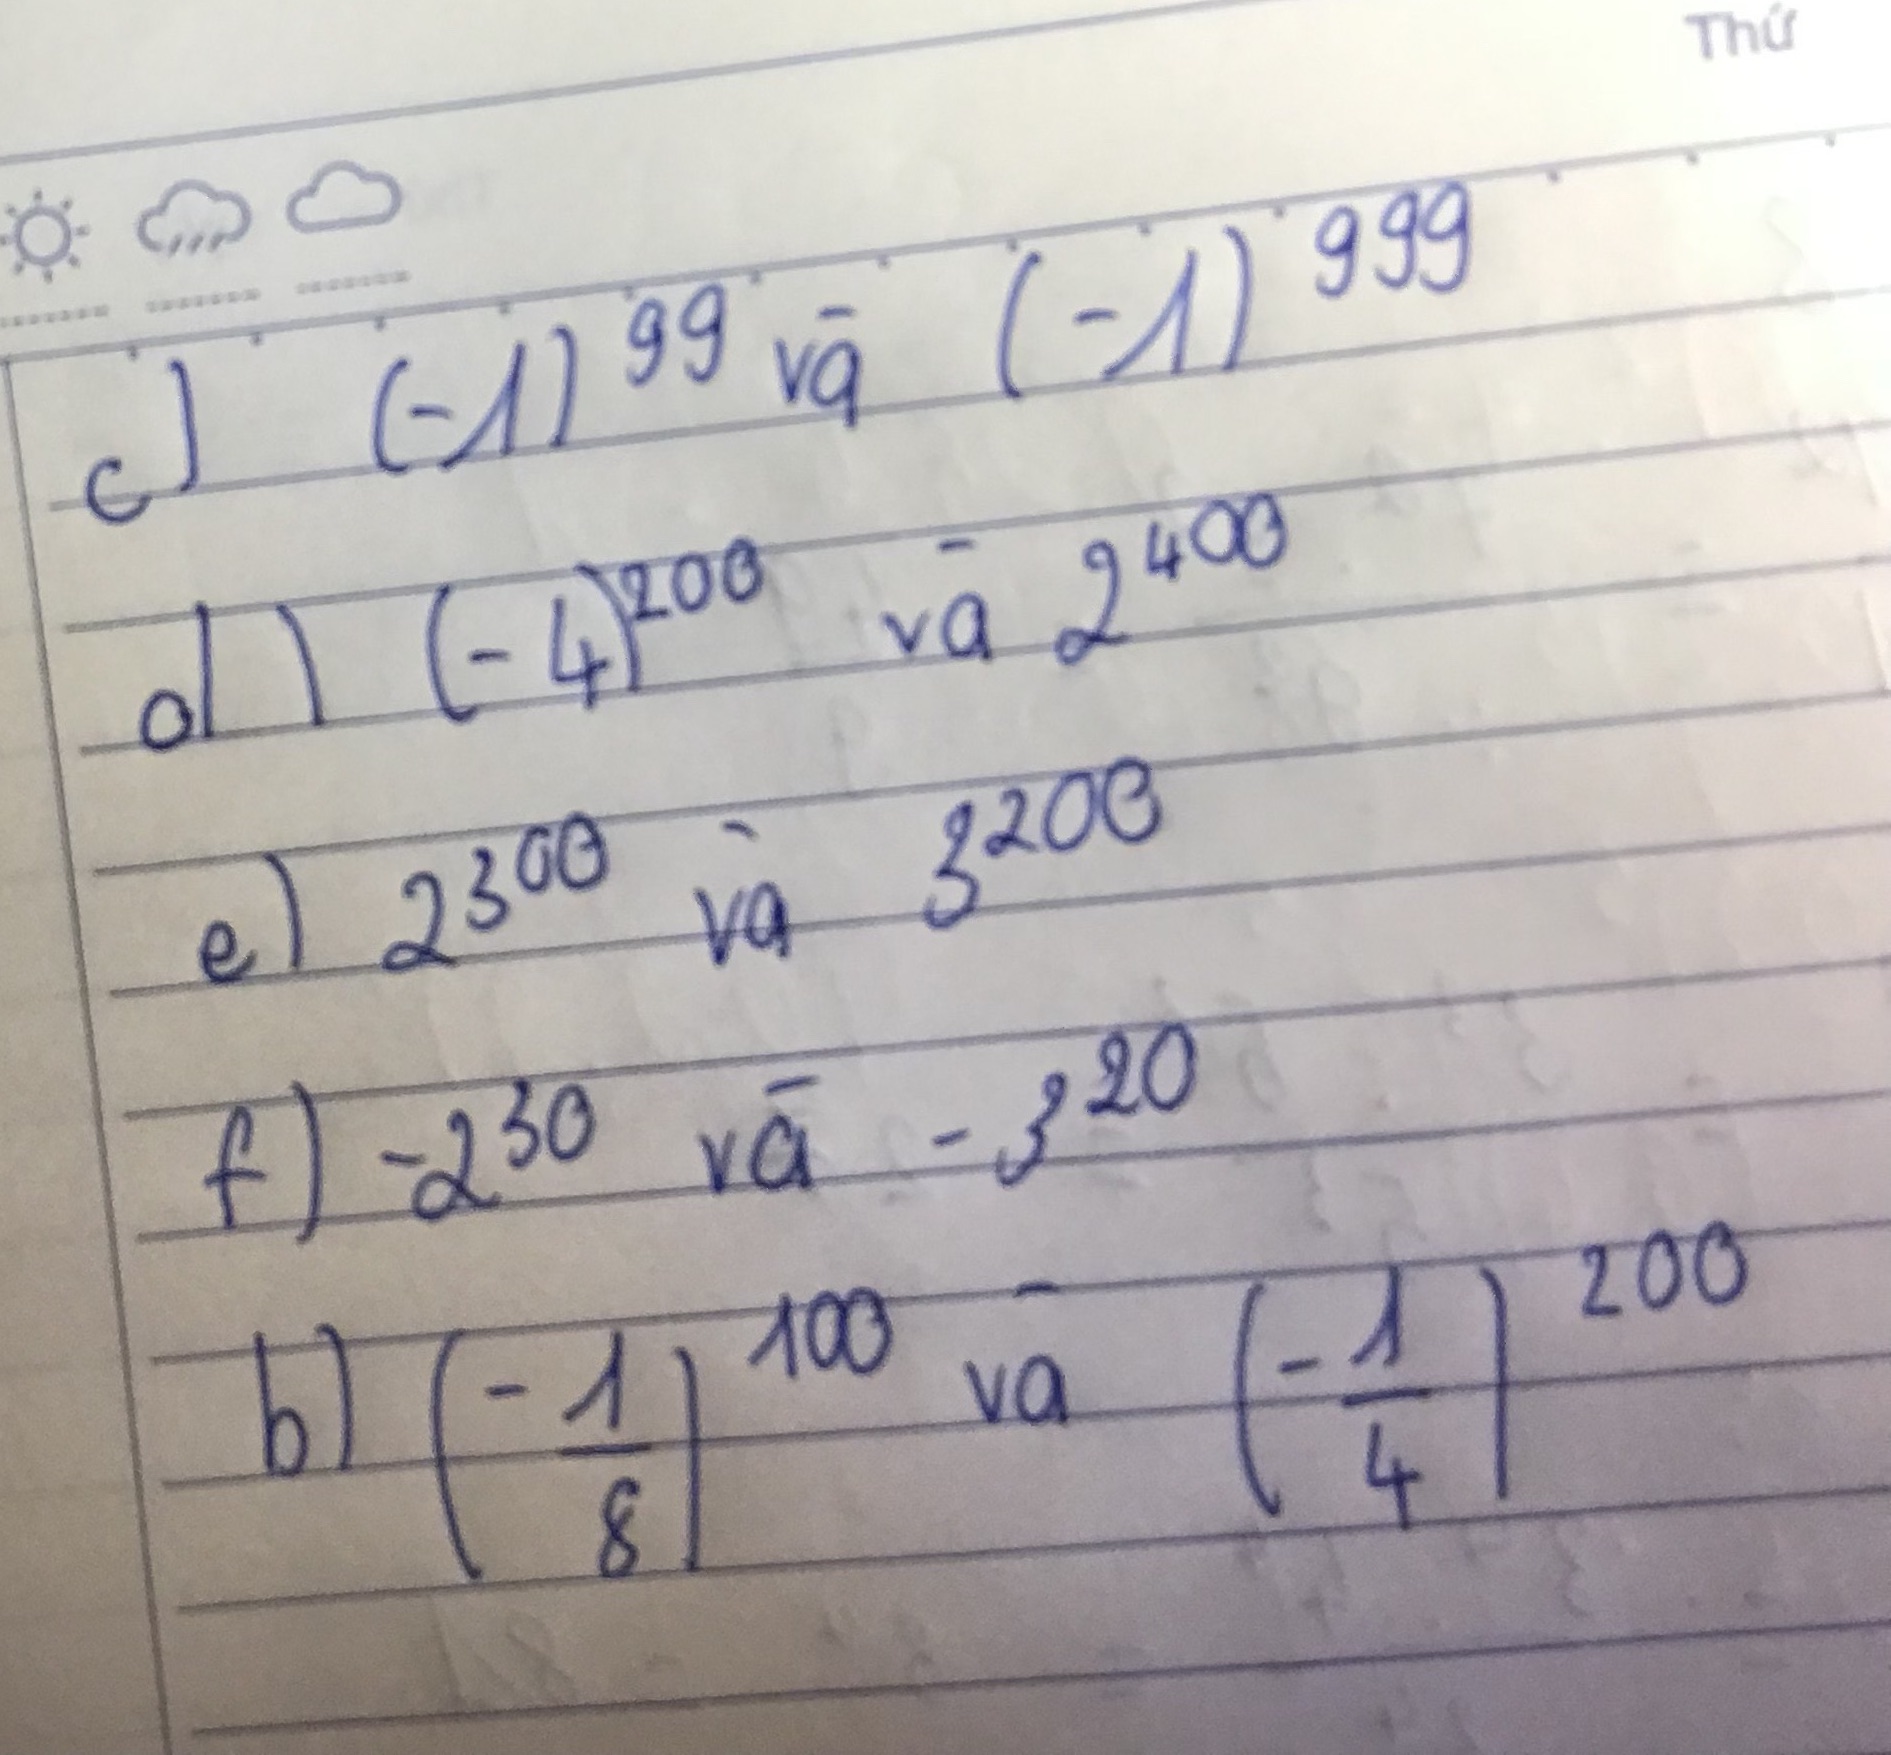 Thứ
c) (-1)^99 và (-1)^999
d) (-4)^200 và 2^400
e) 2^300 và 3^200
f) -2^30 và -3^20
b) (-1/8)^100 và (-1/4)^200